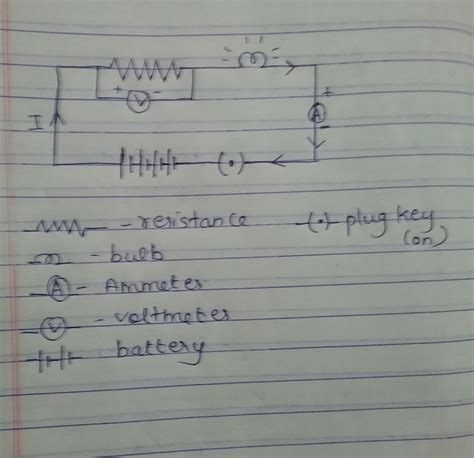 + V -
+
A
-
I
- resistance
(•) plug key
(on)
- bulb
A - Ammeter
V - voltmeter
battery